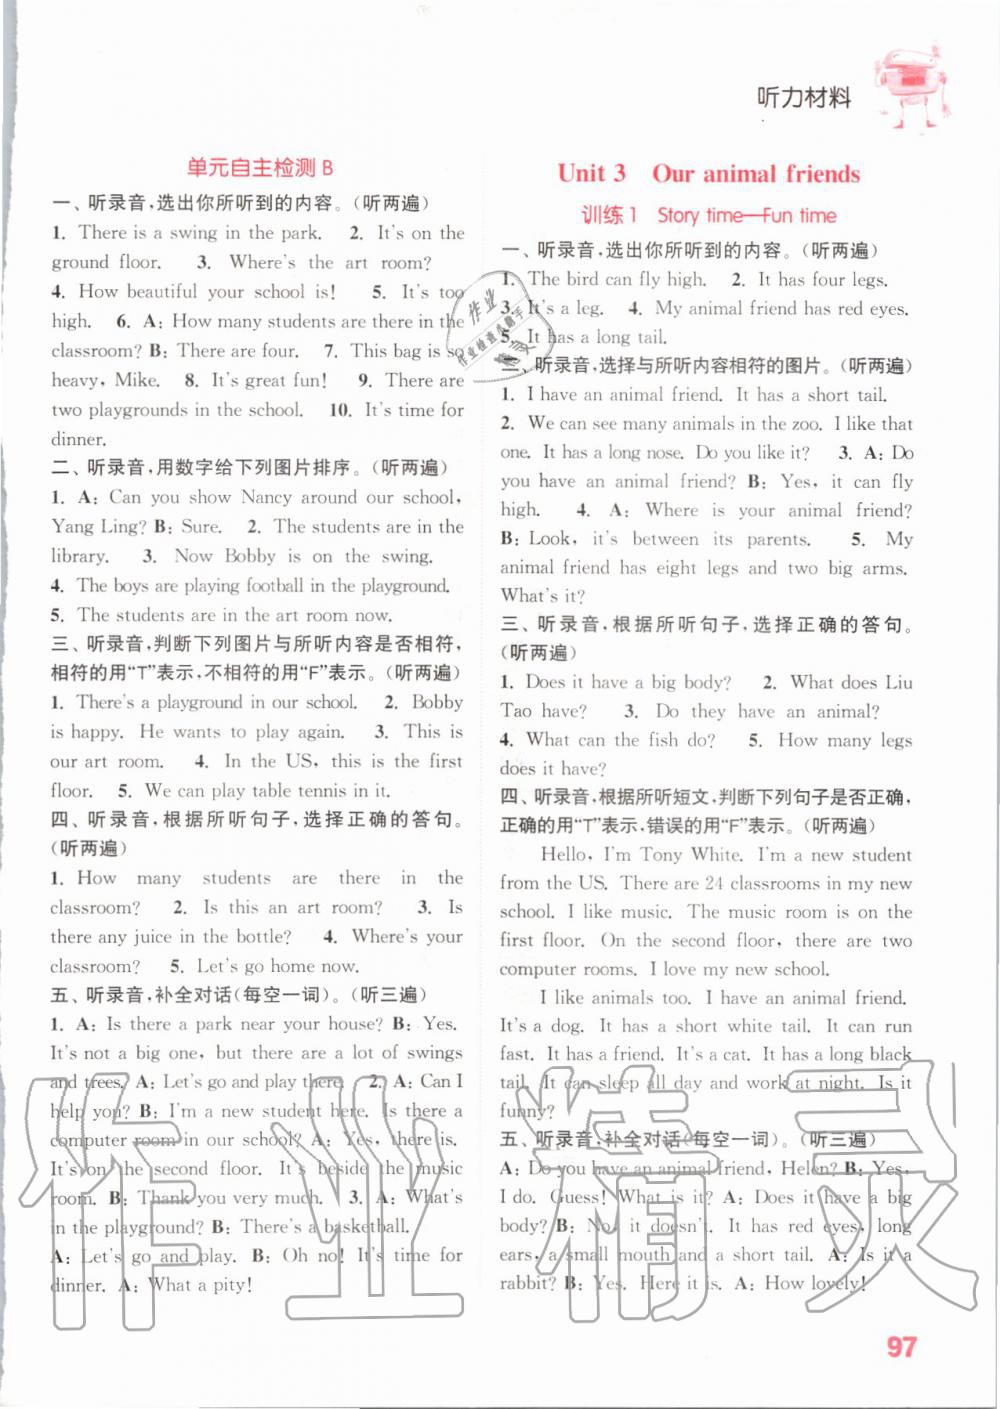 听力材料
单元自主检测 B
一、听录音,选出你所听到的内容。(听两遍)
1. There is a swing in the park. 2. It's on the
ground floor. 3. Where's the art room?
4. How beautiful your school is! 5. It's too
high. 6. A: How many students are there in the
classroom? B: There are four. 7. This bag is so
heavy, Mike. 8. It's great fun! 9. There are
two playgrounds in the school. 10. It's time for
dinner.
二、听录音,用数字给下列图片排序。(听两遍)
1. A: Can you show Nancy around our school,
Yang Ling? B: Sure. 2. The students are in the
library. 3. Now Bobby is on the swing.
4. The boys are playing football in the playground.
5. The students are in the art room now.
三、听录音,判断下列图片与所听内容是否相符,
相符的用“T”表示,不相符的用“F”表示。(听两遍)
1. There's a playground in our school. 2. Bobby
is happy. He wants to play again. 3. This is
our art room. 4. In the US, this is the first
floor. 5. We can play table tennis in it.
四、听录音,根据所听句子,选择正确的答句。
(听两遍)
1. How many students are there in the
classroom? 2. Is this an art room? 3. Is
there any juice in the bottle? 4. Where's your
classroom? 5. Let's go home now.
五、听录音,补全对话(每空一词)。(听三遍)
1. A: Is there a park near your house? B: Yes.
It's not a big one, but there are a lot of swings
and trees. A: Let's go and play there. 2. A: Can I
help you? B: I'm a new student here. Is there a
computer room in our school? A: Yes, there is.
It's on the second floor. It's beside the music
room. B: Thank you very much. 3. A: What's
in the playground? B: There's a basketball.
A: Let's go and play. B: Oh no! It's time for
dinner. A: What a pity!
Unit 3 Our animal friends
训练1 Story time—Fun time
一、听录音,选出你所听到的内容。(听两遍)
1. The bird can fly high. 2. It has four legs.
3. It's a leg. 4. My animal friend has red eyes.
5. It has a long tail.
二、听录音,选择与所听内容相符的图片。(听两遍)
1. I have an animal friend. It has a short tail.
2. We can see many animals in the zoo. I like that
one. It has a long nose. Do you like it? 3. A: Do
you have an animal friend? B: Yes, it can fly
high. 4. A: Where is your animal friend?
B: Look, it's between its parents. 5. My
animal friend has eight legs and two big arms.
What's it?
三、听录音,根据所听句子,选择正确的答句。
(听两遍)
1. Does it have a big body? 2. What does Liu
Tao have? 3. Do they have an animal?
4. What can the fish do? 5. How many legs
does it have?
四、听录音,根据所听短文,判断下列句子是否正确,
正确的用“T”表示,错误的用“F”表示。(听两遍)
Hello, I'm Tony White. I'm a new student
from the US. There are 24 classrooms in my new
school. I like music. The music room is on the
first floor. On the second floor, there are two
computer rooms. I love my new school.
I like animals too. I have an animal friend.
It's a dog. It has a short white tail. It can run
fast. It has a friend. It's a cat. It has a long black
tail. It can sleep all day and work at night. Is it
funny?
五、听录音,补全对话(每空一词)。(听三遍)
A: Do you have an animal friend, Helen? B: Yes,
I do. Guess! What is it? A: Does it have a big
body? B: No, it doesn't. It has red eyes, long
ears, a small mouth and a short tail. A: Is it a
rabbit? B: Yes. Here it is. A: How lovely!
97
作业精灵